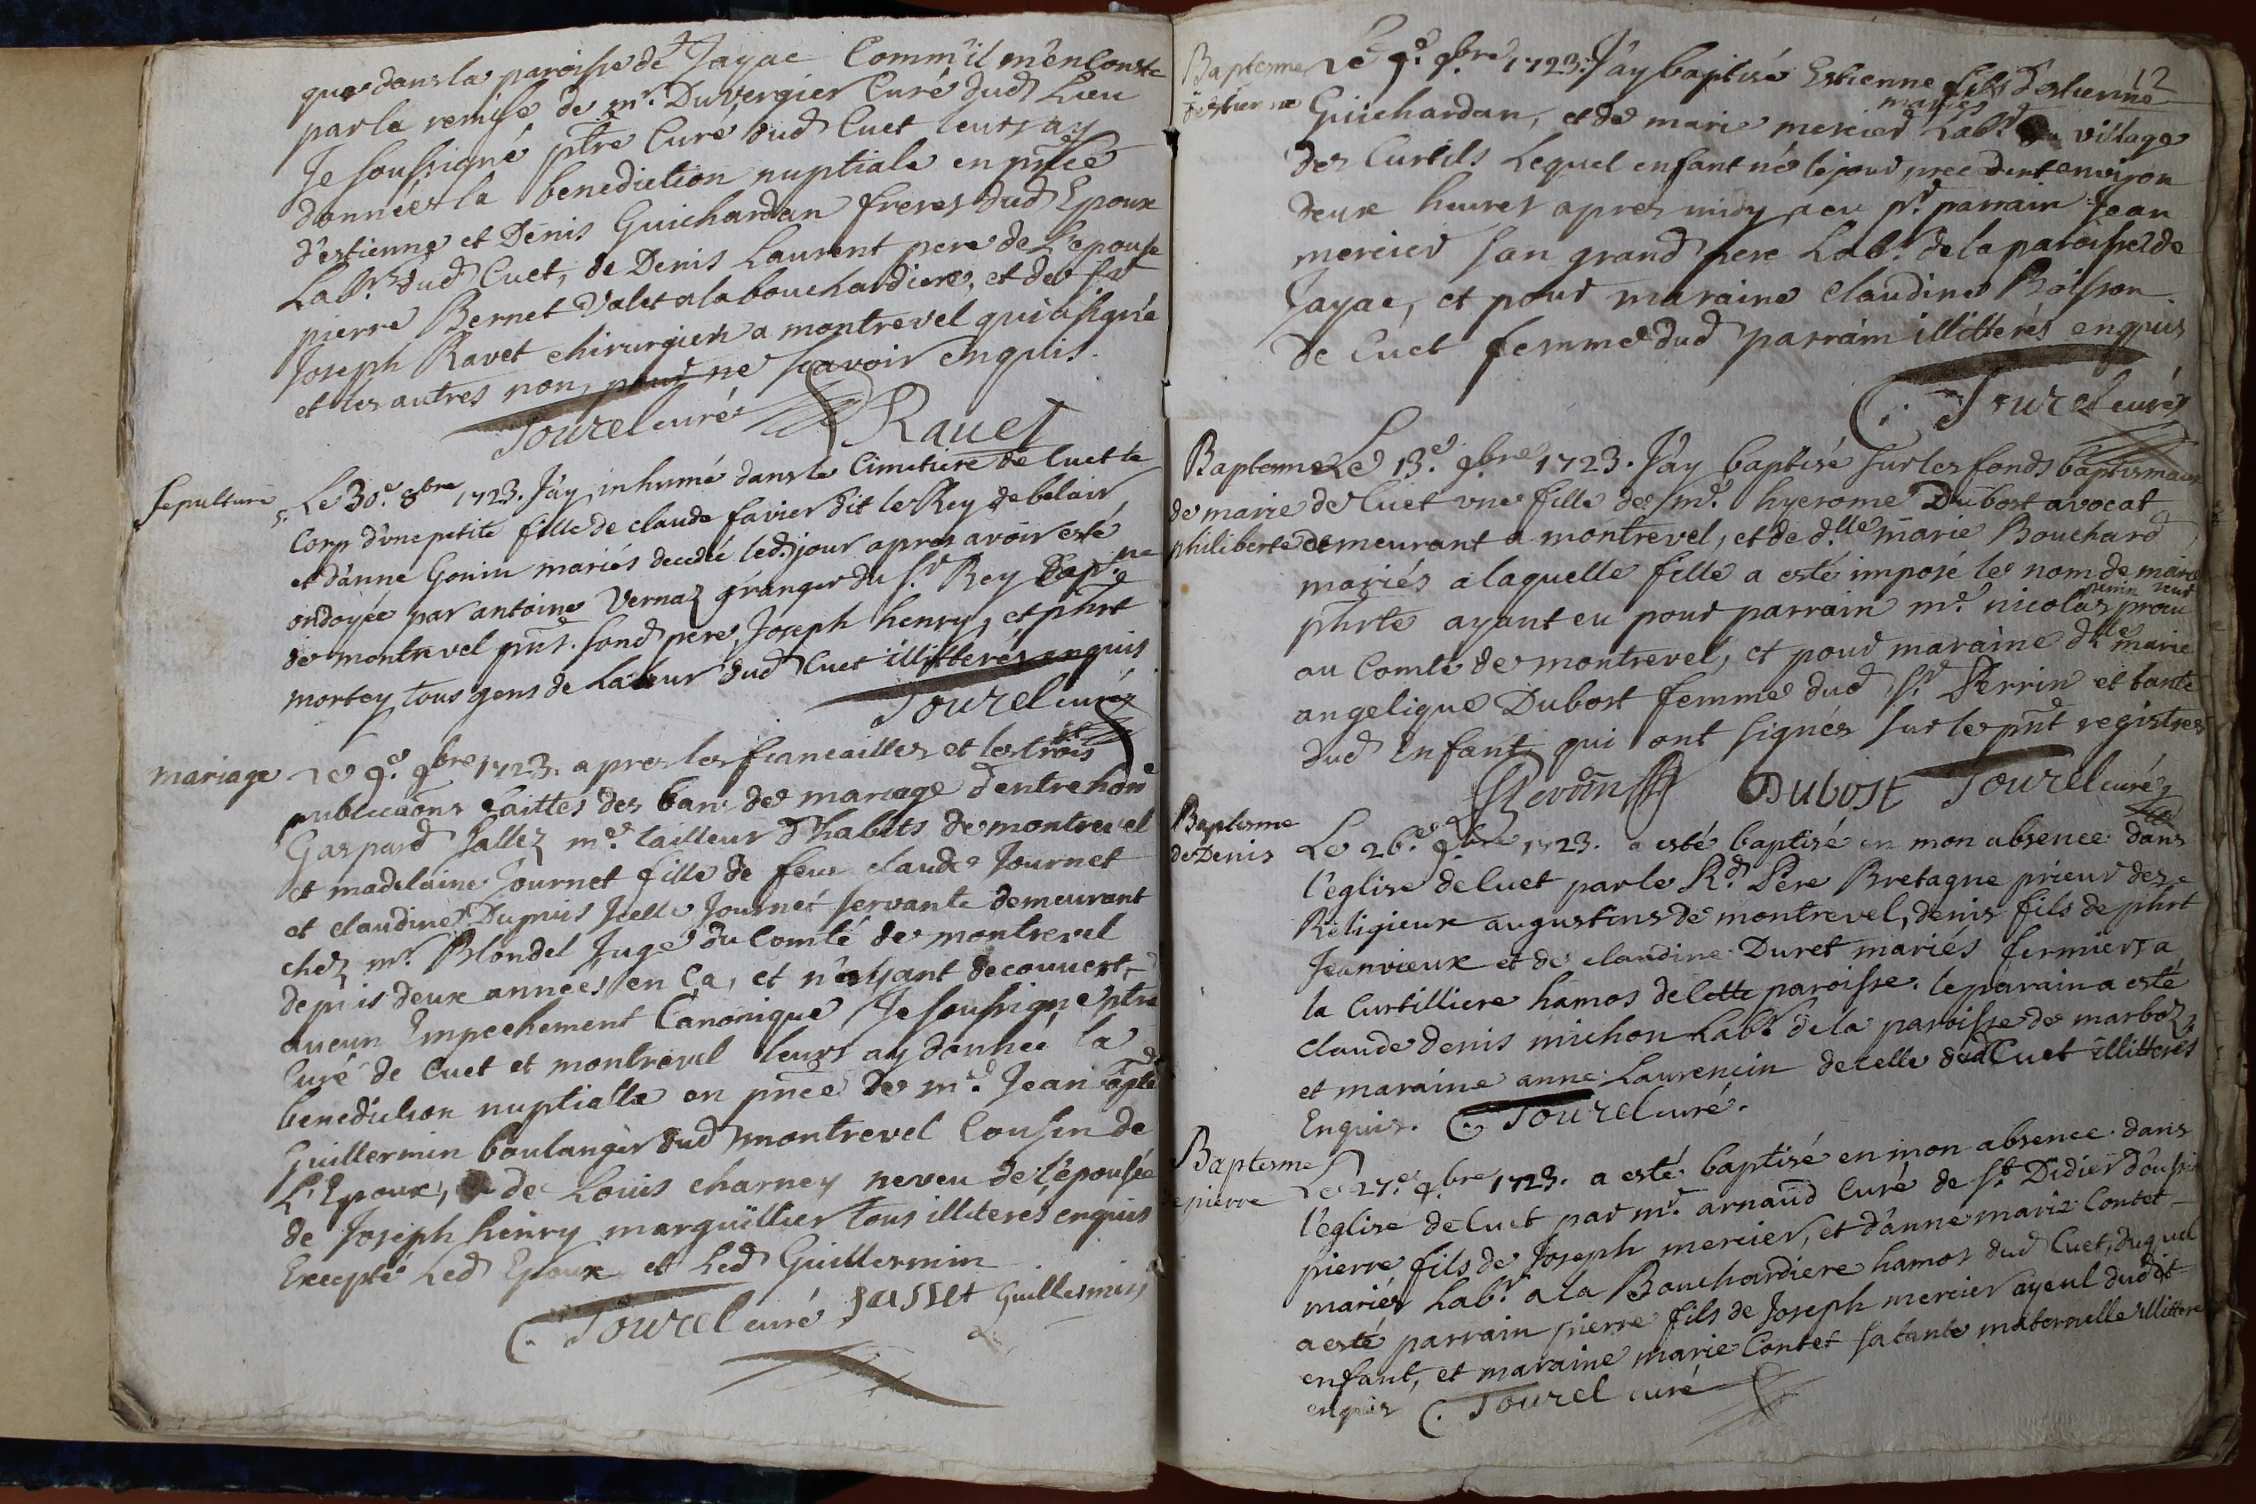 que dans la paroisse de Jayac Comm'il m'en Conste
par la remise de mr. Duvergier Curé dud Lieu
Je soussigné ptre Curé dud Cuet leurs ay
donnée la benediction nuptiale en pnce
d'estienne et Denis Guichardan freres dud Epoux
Labrs. dud Cuet, de Denis Laurent pere de L'epouse
pierre Bernet Valet a la bouchardiere, et de sr
Joseph Ravet chirurgien a montrevel qui a signé
et les autres non, pour ne scavoir enquis.
Tourel curé Ravet
Sepulture
Le 30e. 8bre 1723. J'ay inhumé dans le Cimetiere de Cuet le
Corp d'une petite fille de claude favier dit le Rey de belair
et d'anne Gonin mariés decedé led. jour apres avoir esté
ondoyée par antoine Vernaz granger du sr. Rey Cap.ne
de montrevel pnt. sond pere, Joseph henry, et phrt
mortey tous gens de Labeur dud Cuet illitterés enquis
Tourel curé
mariage
Le 9e. 9bre 1723. apres les fiancailles et les trois
publications faittes des bans de mariage d'entre hone
Gaspard Sallez me. tailleur d'habits de montrevel
et madelaine Journet fille de feu claude Journet
et claudine Dupuis Icelle Journet servante demeurant
chez mr. Blondel Juge du Comté de montrevel
depuis deux années en Ca, et n'ayant decouvert
aucun Empechement Canonique Je soussigné ptre
Curé de Cuet et montrevel leurs ay donnée la
benediction nuptialle en pnce de me. Jean bapte
Guillermin boulanger dud montrevel Cousin de
L'Epoux, de Louis charney neveu de l'épousée
de Joseph henry marguillier tous illiterés enquis
Excepté Led Epoux et Led Guillermin
C. Tourel curé Guillermin
12
Baptesme
d'estienne
Le 9e. 9bre 1723. J'ay baptisé Estienne fils d'estienne
Guichardan, et de marie mercier mariés Labrs. du village
des Curtils Lequel enfant né le jour precedent environ
deux heures apres midy a eu pr. parrain Jean
mercier son grand pere Labr. de la paroisse de
Jayac, et pour maraine claudine Boisson
de Cuet femme dud parrain illitterés enquis
C. Tourel curé
Baptesme
de marie
philiberte
Le 13e. 9bre 1723. J'ay baptisé sur les fonds baptismaux
de Cuet une fille de me. hyerome Dubost avocat
demeurant a montrevel, et de dlle marie Bouchard
mariés a laquelle fille a esté imposé le nom de marie
phrte ayant eu pour parrain me. nicolas perrin procu
reur
au Comté de montrevel, et pour maraine dlle marie
angelique Dubost femme dud sr. Perrin et tante
dud Enfant qui ont signés sur les pnt registres
Perrin Dubost Tourel curé
Baptesme
de Denis
Le 26e. 9bre 1723. a esté baptisé en mon absence dans
l'eglise de Cuet par le Rd. Pere Bretagne prieur des
Religieux augustins de montrevel, denis fils de phrt
Jeanvieux et de claudine Duret mariés fermiers a
la Curtilliere hamos de Cette paroisse. le parain a esté
claude denis michon Labr de la paroisse de marboz
et maraine anne Laurencin de celle dud Cuet illitterés
Enquis. C. Tourel curé.
Baptesme
de pierre
Le 27e. 9bre 1723. a esté baptisé en mon absence dans
l'eglise de Cuet par mr. arnaud Curé de St. Didier d'oussiat
pierre fils de Joseph mercier, et d'anne marie Contet
mariés Labrs a la Bouchardiere hamos dud Cuet, duquel
a esté parrain pierre fils de Joseph mercier ayeul dudit
enfant, et maraine marie Contet sa tante maternelle illittere
enquis C. Tourel curé